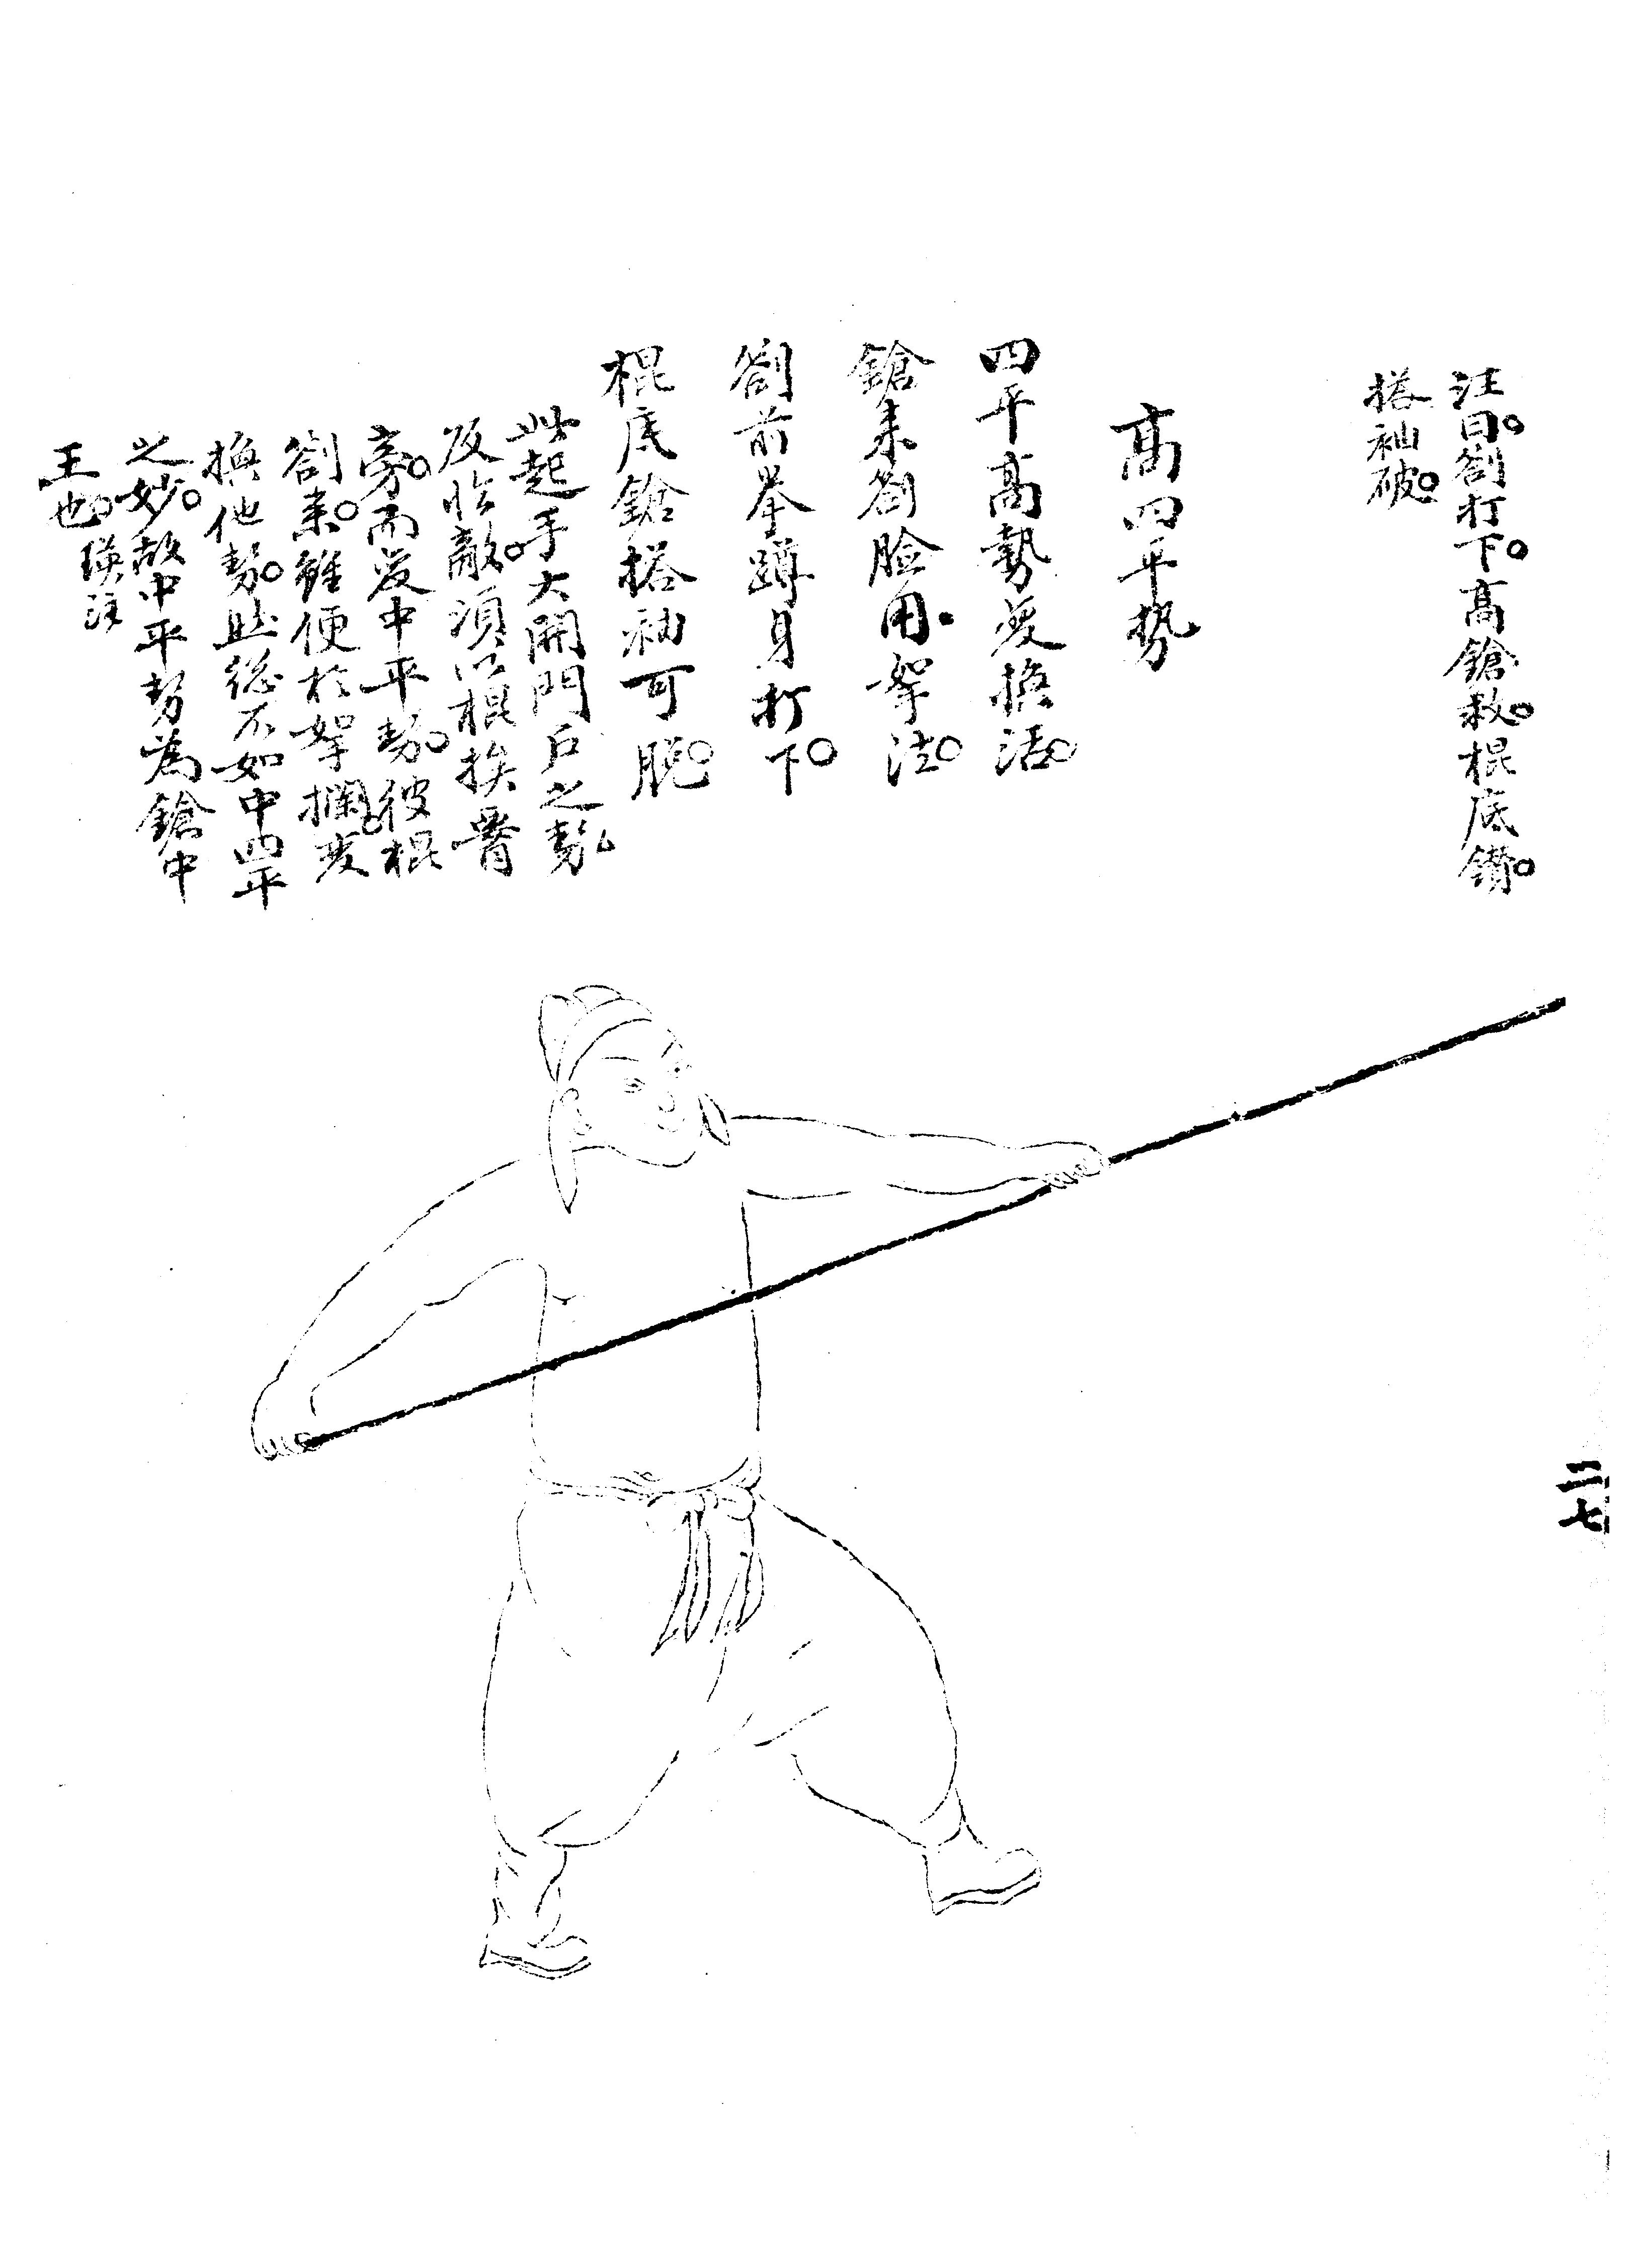 注曰。劄打下。高鎗救。棍底鑽。
搭袖破。
高四平勢
四平高勢变換活。
鎗来劄臉用拏法。
劄前拳蹲身打下。
棍底鎗搭袖可脱。
此起手大開門户之勢
及临敵。須以棍挨唇
旁。而变中平勢。彼棍
劄来。雖便於拏攔。变
換他勢。且総不如中四平
之妙。故中平勢為鎗中
王也。瑛注
二七